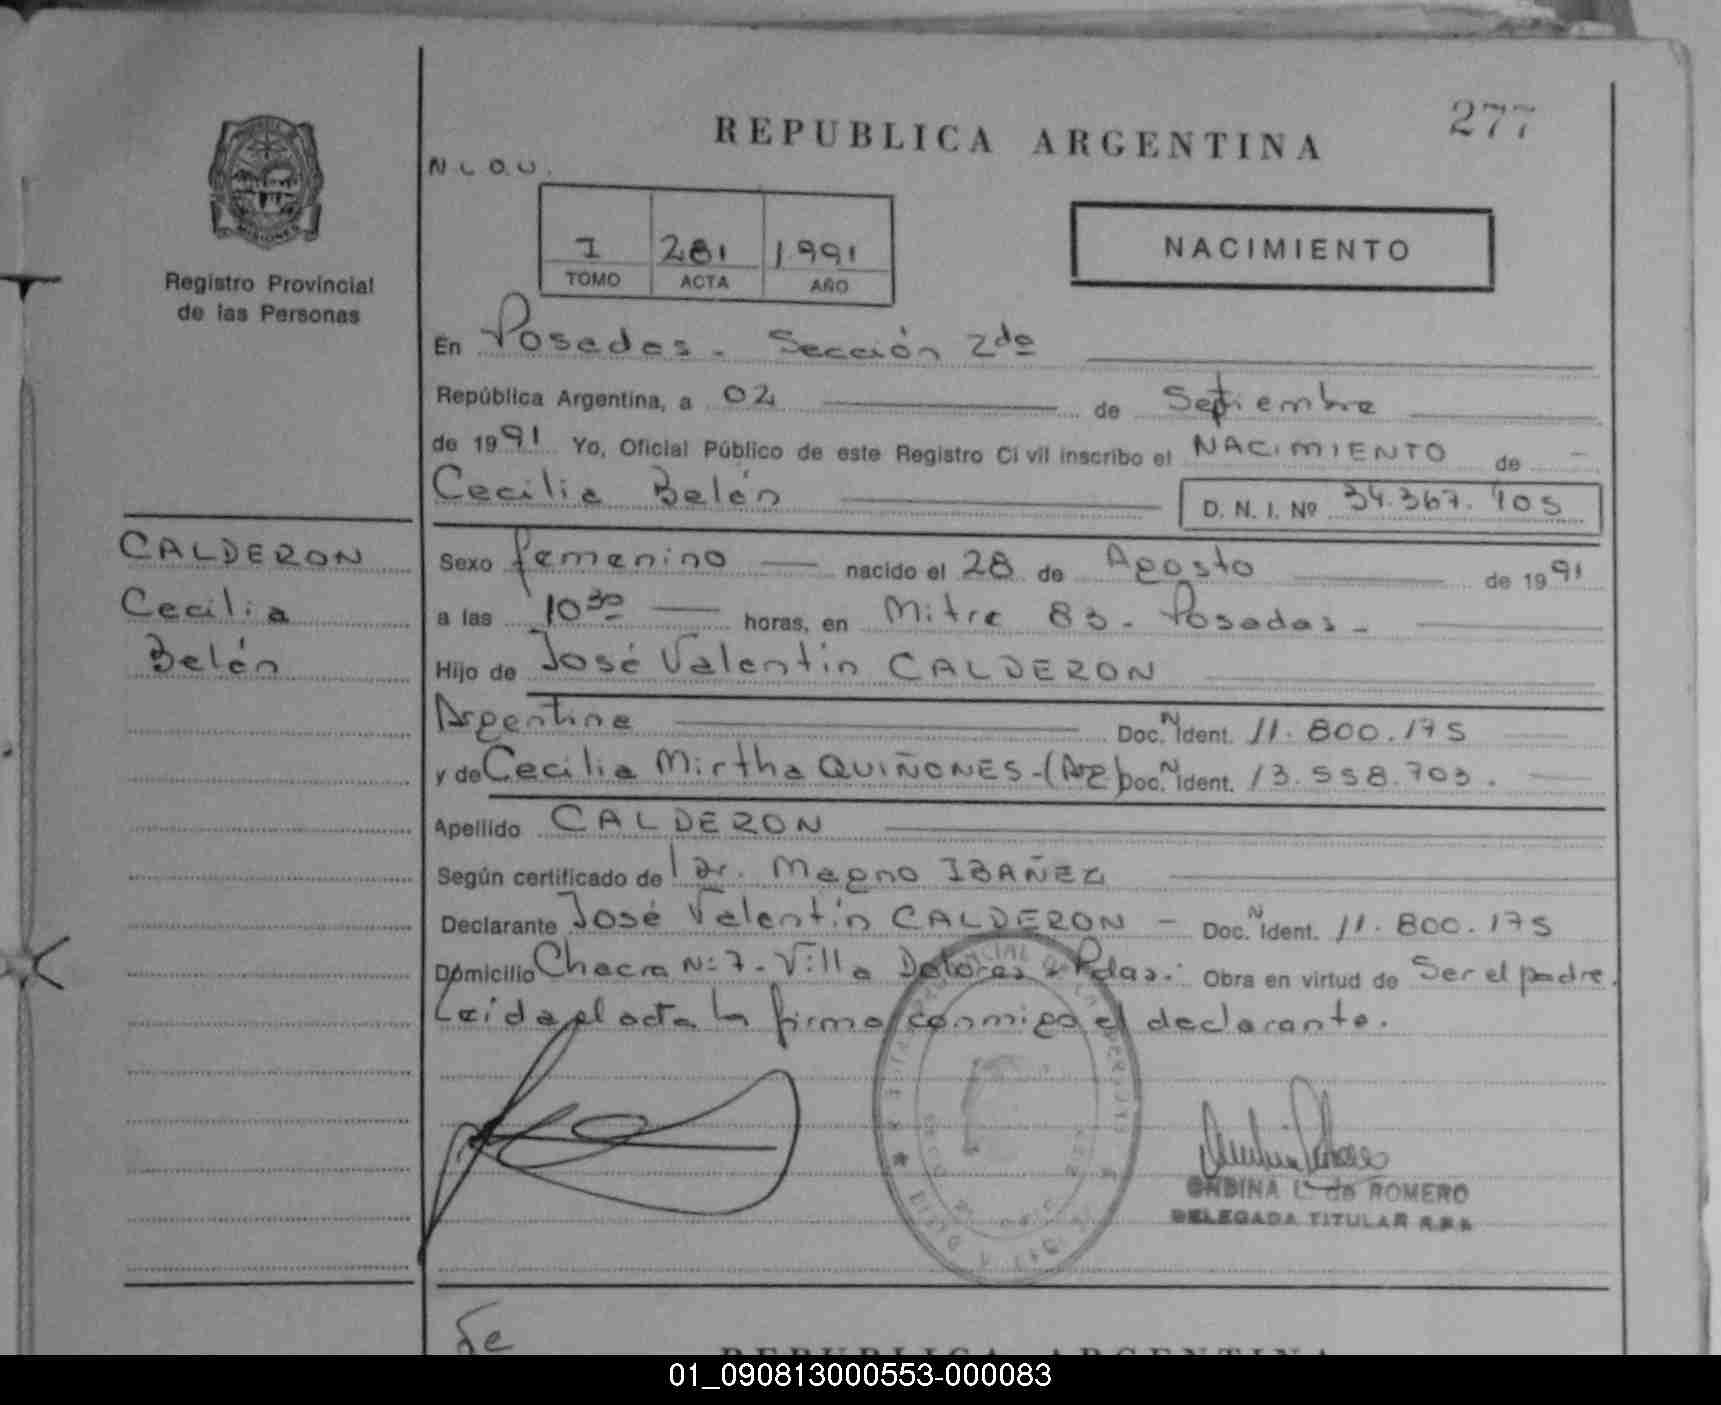 277
REPUBLICA ARGENTINA
N L O U.
MISIONES
Registro Provincial
de las Personas
I 281 1.991
TOMO ACTA AÑO
NACIMIENTO
En Posadas - Sección 2da
República Argentina, a 02 de Septiembre
de 1991 Yo, Oficial Público de este Registro Civil inscribo el NACIMIENTO de -
Cecilia Belén D. N. I. Nº 34.367.405
CALDERON
Cecilia
Belén
Sexo femenino nacido el 28 de Agosto de 1991
a las 10 30 horas, en Mitre 83 - Posadas -
Hijo de José Valentín CALDERON
Argentina Doc. N Ident. 11.800.175
y de Cecilia Mirtha QUIÑONES - (Arg) Doc. N Ident. 13.558.703.
Apellido CALDERON
Según certificado de Dr. Magno IBAÑEZ
Declarante José Valentín CALDERON - Doc. N Ident. 11.800.175
Domicilio Chacra Nº 7 - Villa Dolores - Pdas. Obra en virtud de Ser el padre.
Leída el acta la firma conmigo el declarante.
ONDINA L. de ROMERO
DELEGADA TITULAR R.P.P.
REPUBLICA ARGENTINA
01_090813000553-000083